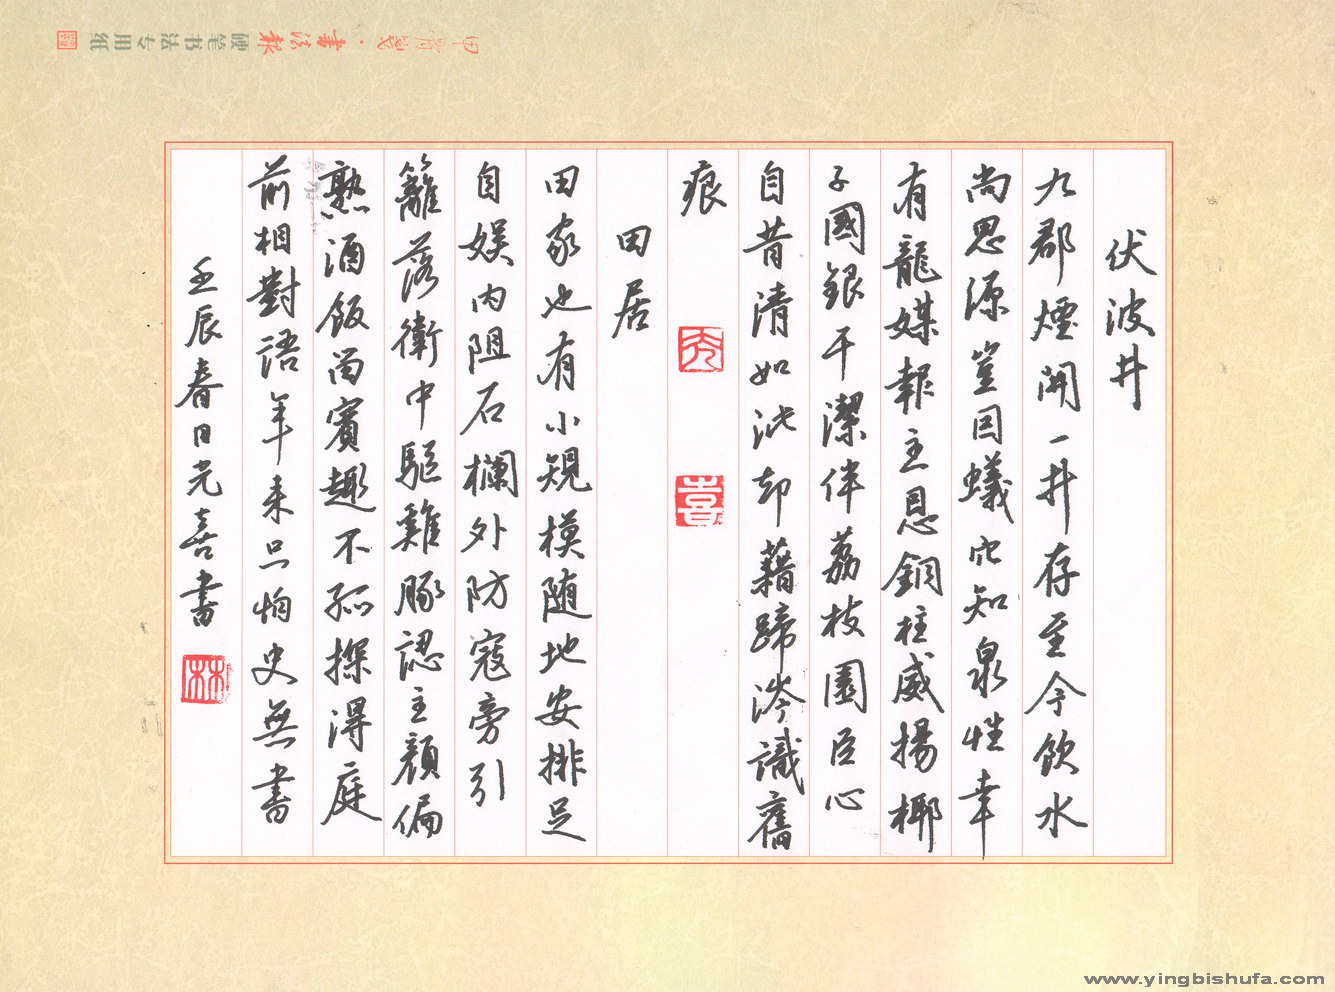 伏波井
九郡煙開一井存至今飲水
尚思源豈因蟻穴知泉性幸
有龍媒報主恩銅柱威揚椰
子國銀干潔伴荔枝園臣心
自昔清如此却藉蹄涔識舊
痕
光
喜
田居
田家也有小規模随地安排足
自娱内阻石欄外防寇旁引
籬落衛中驅雞豚認主顔偏
熟酒飯留賓趣不孤探得庭
前相對語年来只怕史無書
壬辰春日光喜書
林
書法報
硬笔书法专用纸
www.yingbishufa.com